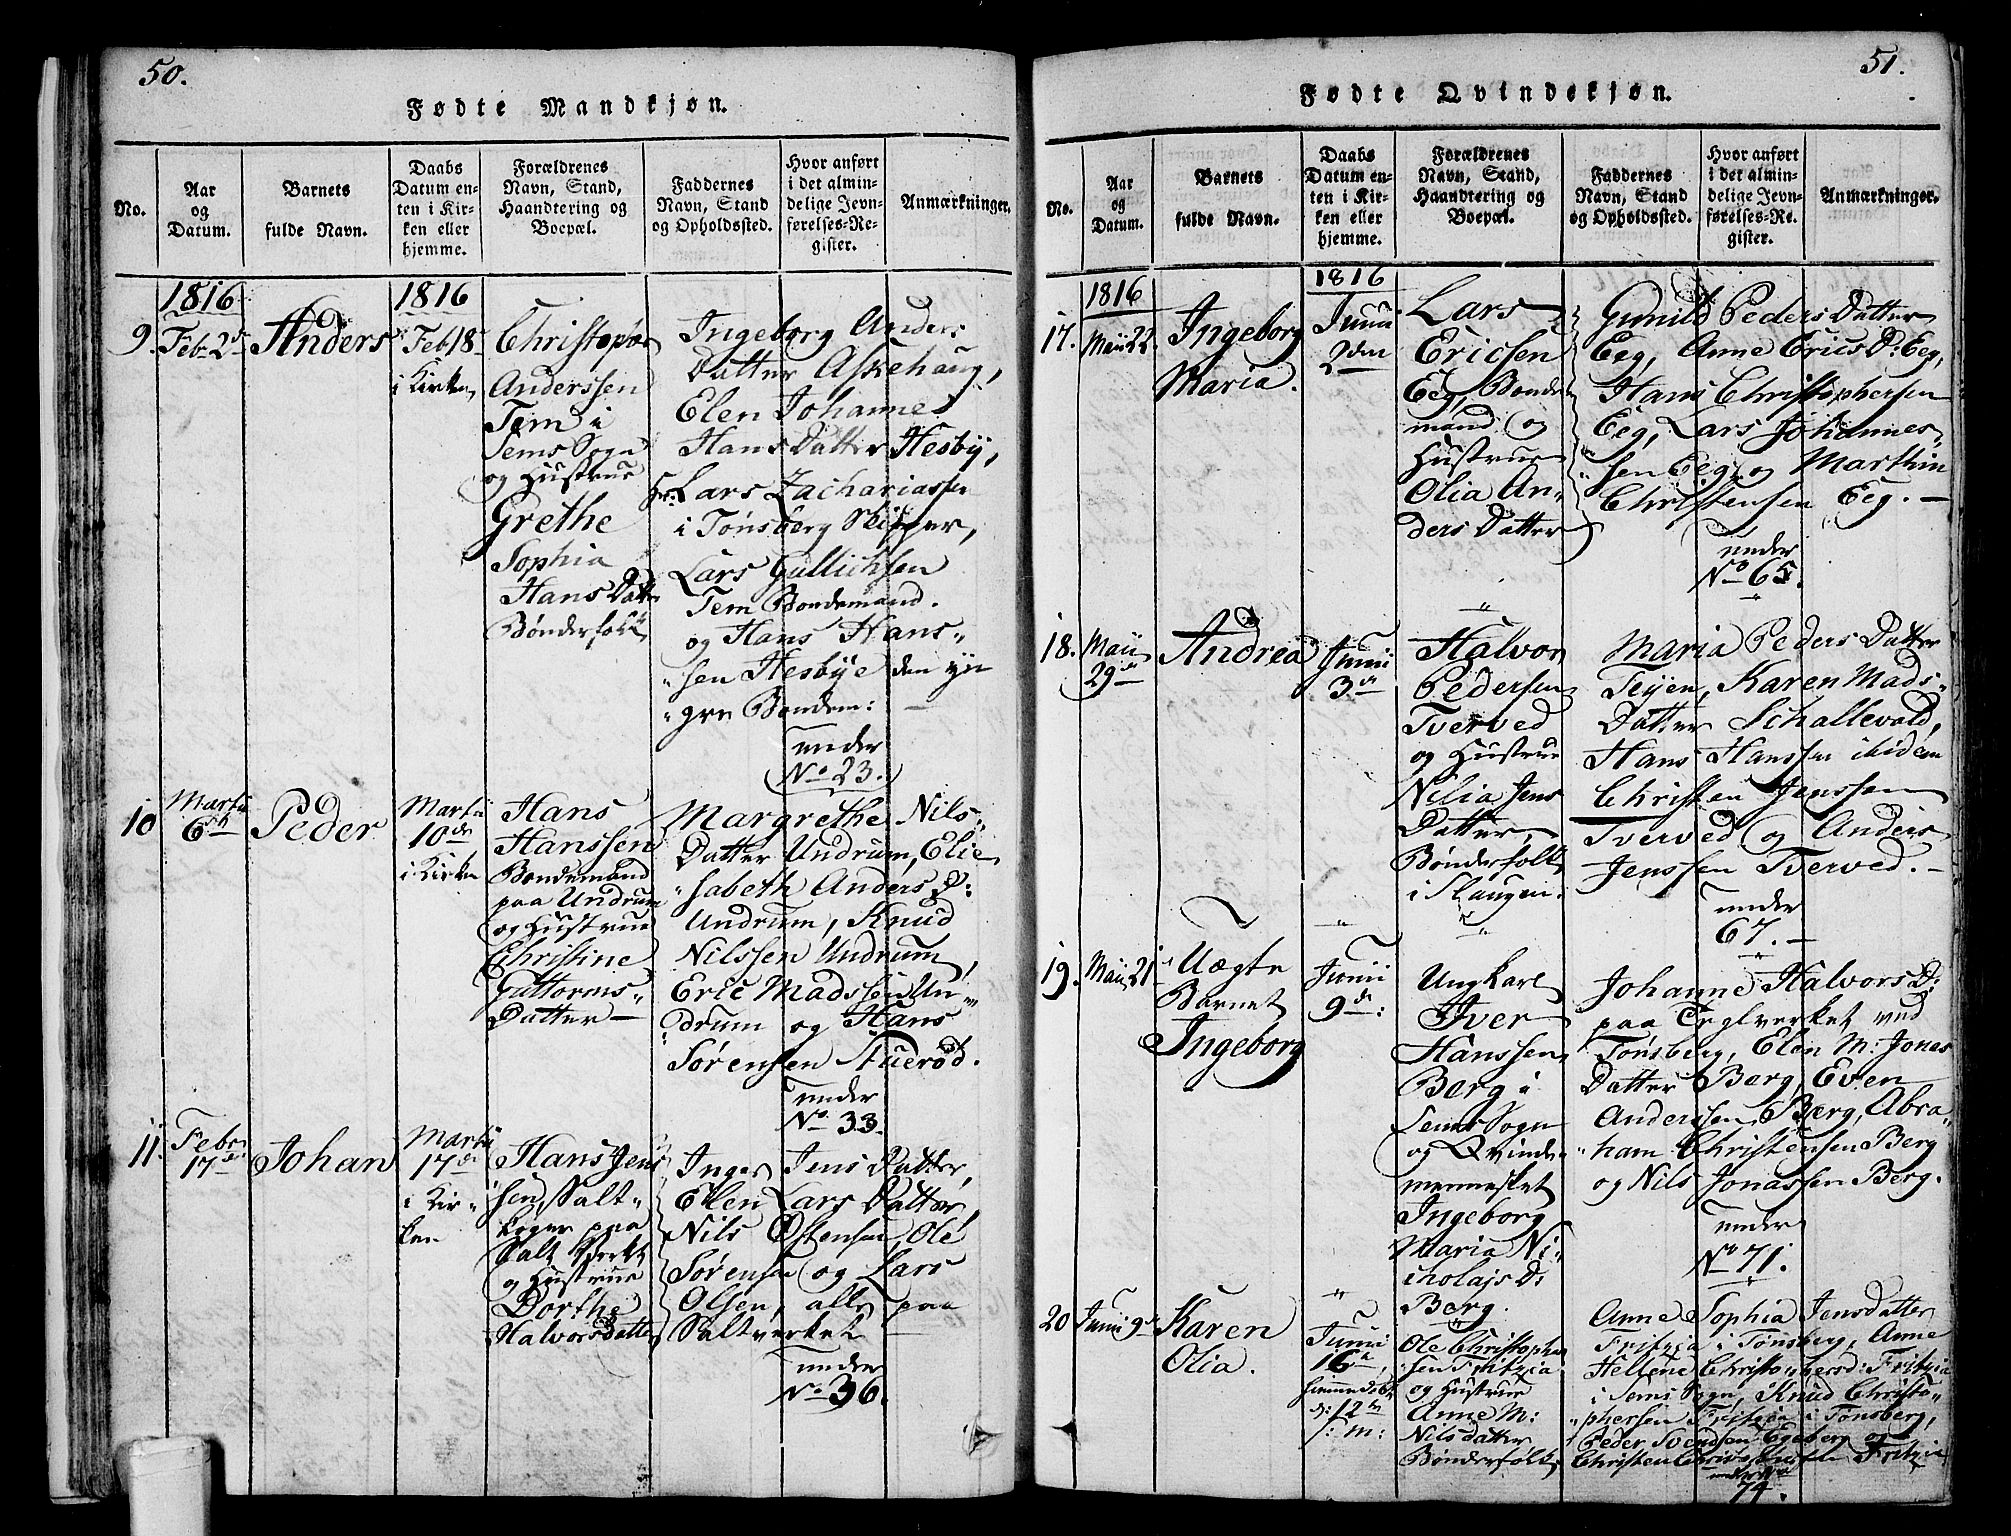 50.
Fødte Mandkjøn.
No.
Aar
og
Datum.
Barnets
fulde Navn.
Daabs
Datum en-
ten i Kir-
ken eller
hjemme.
Forældrenes
Navn, Stand,
Haandtering og
Boepæl.
Faddernes
Navn, Stand
og Opholdssted.
Hvor anført
i det almin-
delige Jevn-
førelses-Re-
gister.
Anmærkninger.
1816
9. Feb. 2
Anders
1816
Feb. 18
i Kirken
Christopher
Anderssen
Tem i
Sems Sogn
og Hustrue
Grethe
Sophia
Hans Datter
Bønderfolk
Ingeborg Anders
Datter Askehaug,
Elen Johanne
Hans Datter Hesby,
Hr. Lars Zachariassen
i Tønsberg Skipper,
Lars Gullichsen
Tem Bondemand.
og Hans Hans-
sen Hesbye den yn
gre Bondem:
under
No 23.
10 Martii
6
Peder
Martii
10de
i Kirken
Hans
Hanssen
Bondemand
paa Undrum
og Hustrue
Christine
Guttorms-
Datter
Margrethe Nils-
Datter Undrum, Elie
sabeth Anders D:
Undrum, Knud
Nilssen Undrum,
Eric Madssen Un
drum og Hans
Sørensen Auerød.
under
No 33.
11. Febr.
17
Johan
Martii
17
i Kir-
ken
Hans Jens
sen, Salt-
koger paa
Salt Verket
og Hustrue
Dorthe
Halvorsdatter
Inger Jens Datter,
Elen Lars Datter,
Nils Østensen, Ole
Sørensen og Lars
Olsen, alle paa
Saltverket
under
No 36.
51.
Fødte Qvindekjøn.
No.
Aar
og
Datum.
Barnets
fulde Navn.
Daabs
Datum en-
ten i Kir-
ken eller
hjemme.
Forældrenes
Navn, Stand,
Haandtering og
Boepæl.
Faddernes
Navn, Stand
og Opholdssted.
Hvor anført
i det almin-
delige Jevn-
førelses-Re-
gister.
Anmærkninger.
1816
17. Maii 22.
Ingeborg
Maria.
1816
Junii
2den
Lars
Ericsen
Eeg, Bonde
mand og
Hustrue
Olia An-
ders Datter
Gunild Peders Datter
Eeg, Anne Erics D: Eeg,
Hans Christophersen
Eeg, Lars Johannes-
sen Eeg og Marthin
Christensen Eeg.
under
No 65.
18. Maii
29
Andrea
Junii
3
Halvor
Pedersen
Tverved
og Hustrue
Nilia Jens
Datter,
Bønderfolk
i Slaugen.
Maria Peders Datter
Teijen, Karen Mads-
Datter Schallevold,
Hans Hanssen ibidem
Christen Jenssen
Tverved og Anders
Jenssen Tverved.
under
67.
19. Maii 21
Uægte
Barnet
Ingeborg
Junii
9
Ungkarl
Iver
Hanssen
Berg i
Sems Sogn
og Qvinde
mennesket
Ingeborg
Maria Ni-
cholajs D:
Berg.
Johanne Halvors D:
paa Teglverket ved
Tønsberg, Elen M: Jonas
Datter Berg, Even
Anderssen Berg, Abra-
ham Christensen Berg
og Nils Jonassen Berg.
under
No 71.
20 Junii 9
Karen
Olia.
Junii
16
12
Ole Christopher
sen Fritzia
og Hustrue
Anne M:
Nilsdatter
Bønderfolk
Anne Sophia Jensdatter
Fritzia i Tønsberg, Anne
Hellene Christophersd: Fritzia
i Sems Sogn, Knud Christo-
phersen Fritzia i Tønsberg,
Peder Svendsen Egeberg og
Christen Fritzia
under
74.